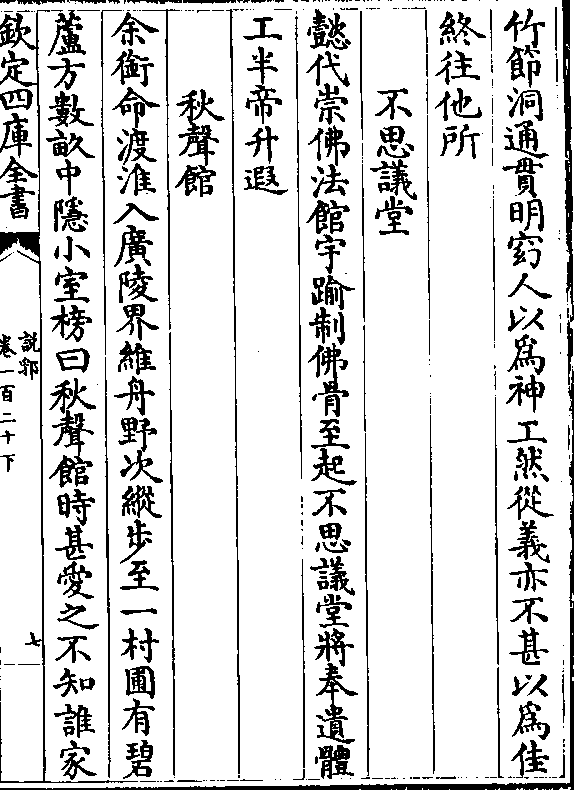 竹節洞通貫明窈人以爲神工然從義亦不甚以爲佳
終往他所
不思議堂
懿代崇佛法館宇踰制佛骨至起不思議堂將奉遺體
工半帝升遐
秋聲館
余銜命渡淮入廣陵界維舟野次縱步至一村圃有碧
蘆方數畝中隱小室榜曰秋聲館時甚愛之不知誰家
欽定四庫全書
說郛
卷一百二十下
七